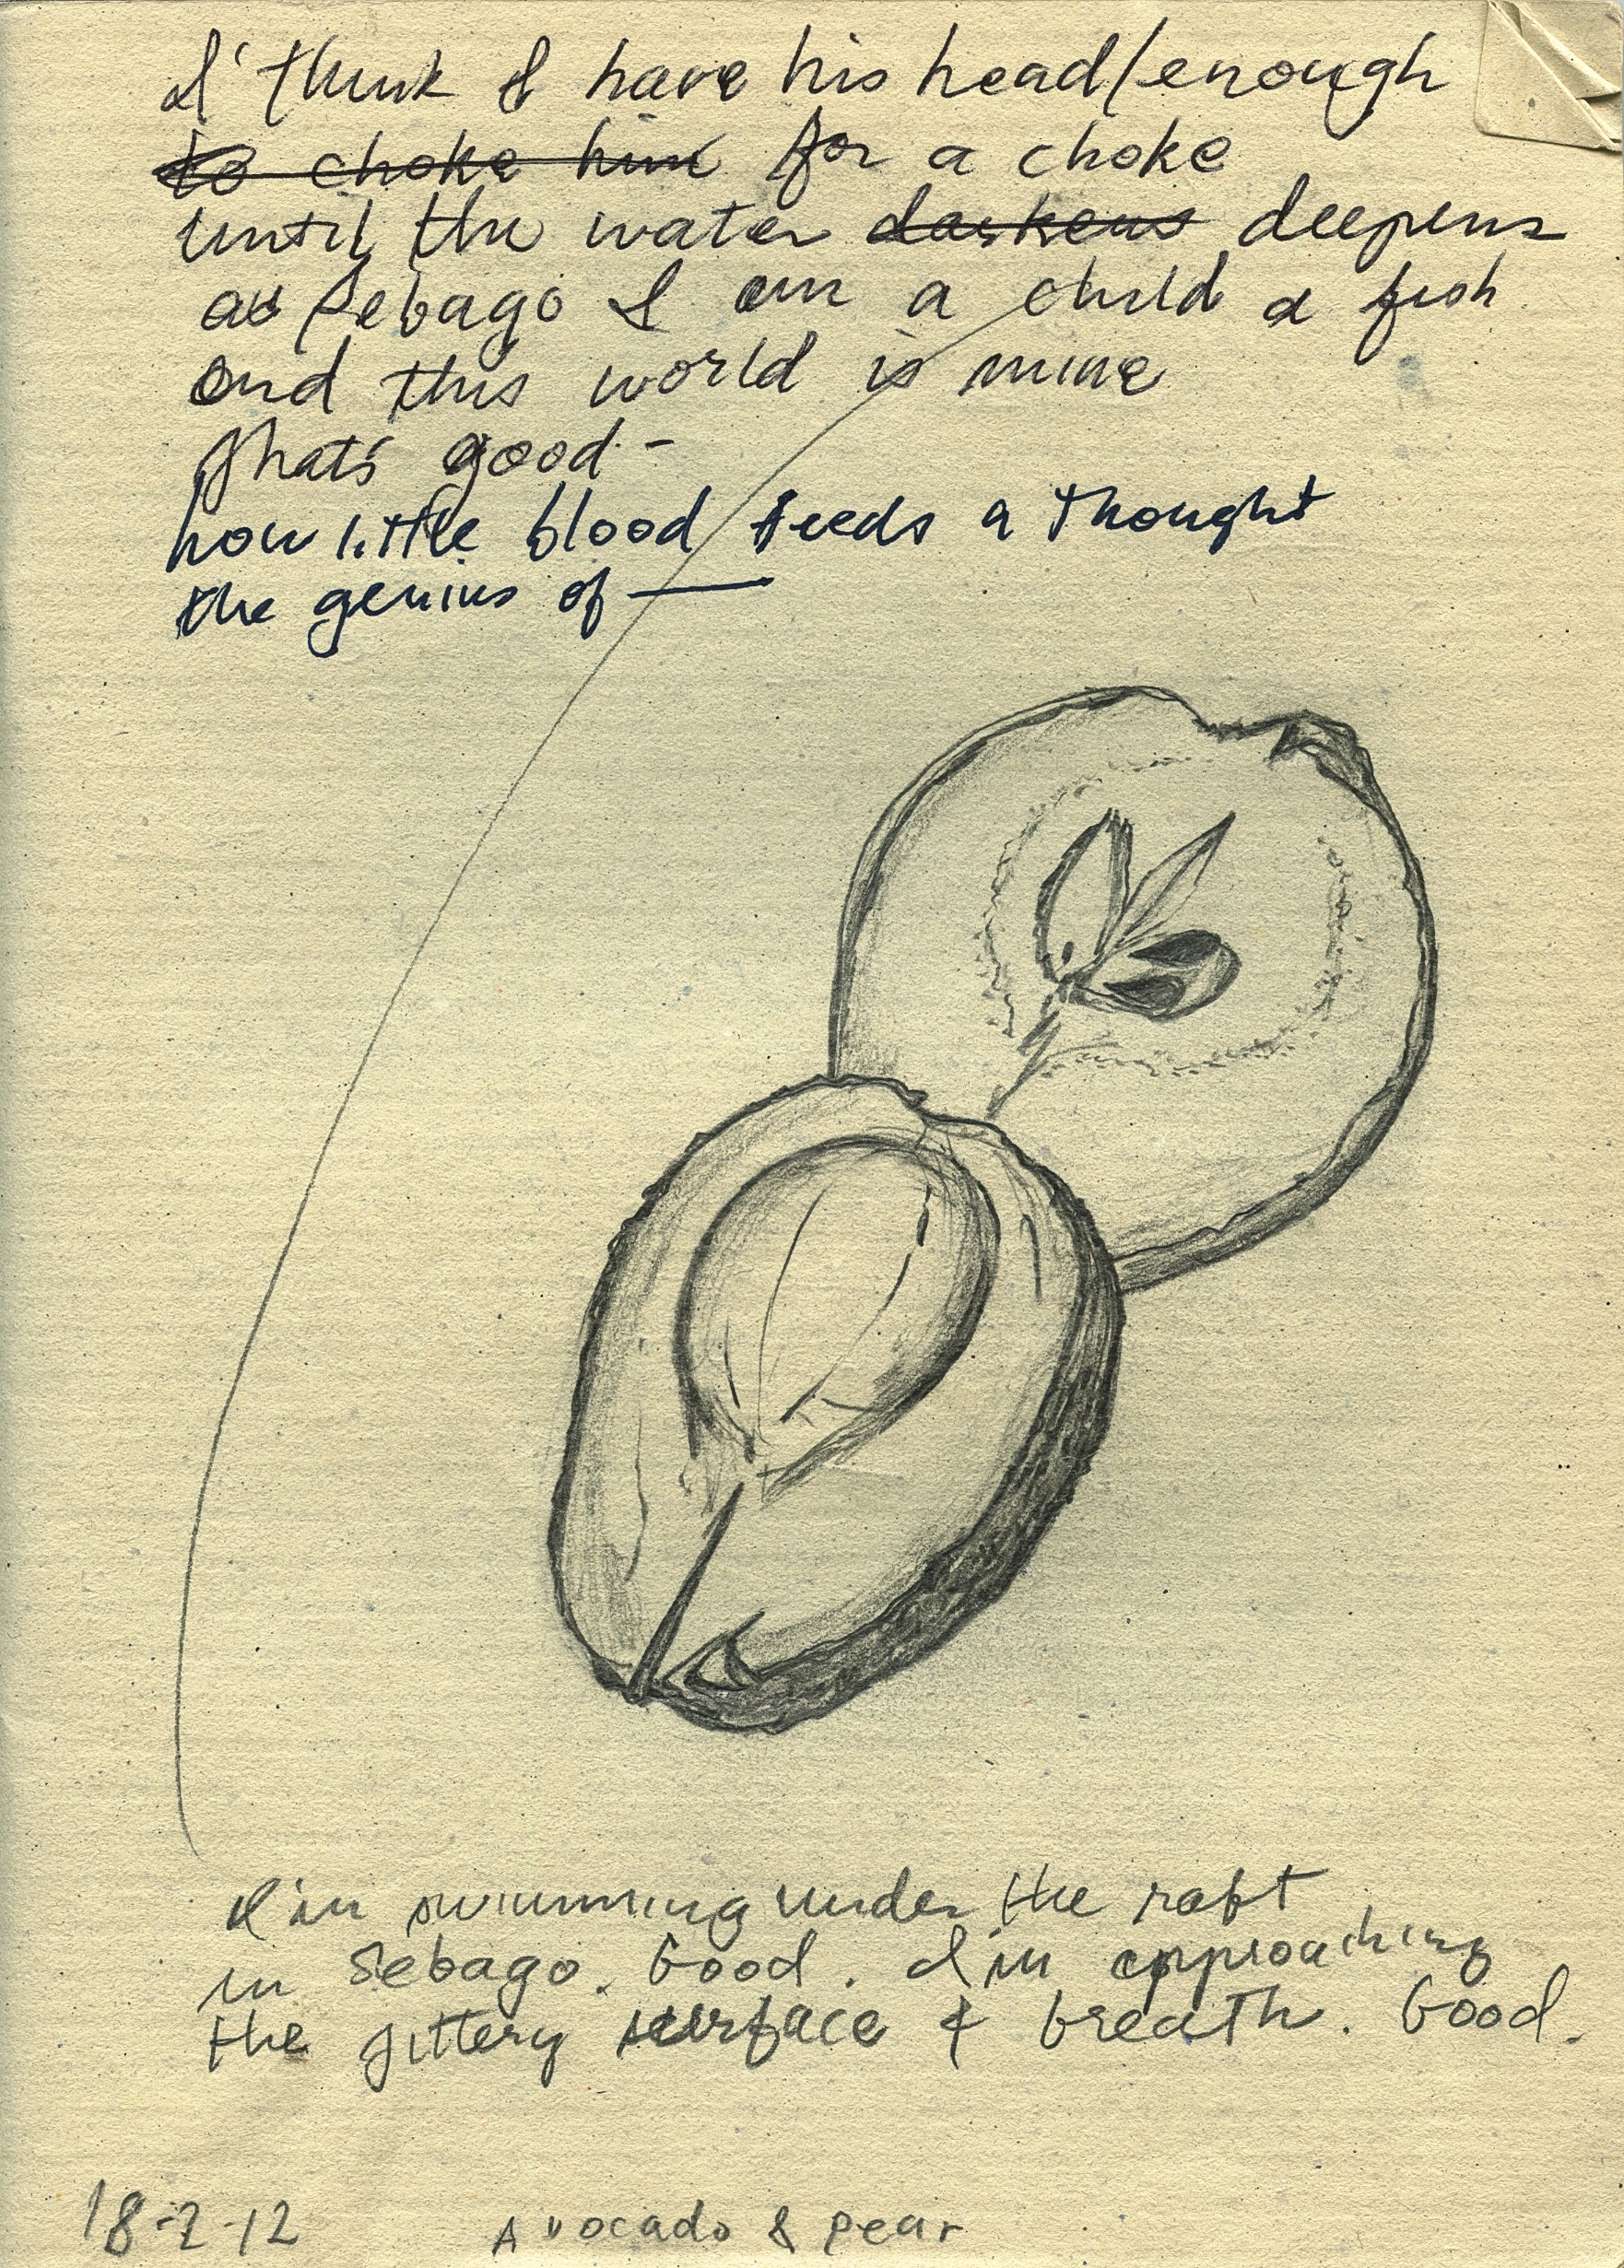 I think I have his head/enough
to choke him for a choke
until the water darkens deepens
as Sebago I am a child a fish
and this world is mine
That's good -
how little blood feeds a thought
the genius of —
I'm swimming under the raft
in Sebago. Good. I'm approaching
the jittery surface & breath. Good.
18-2-12 Avocado & pear